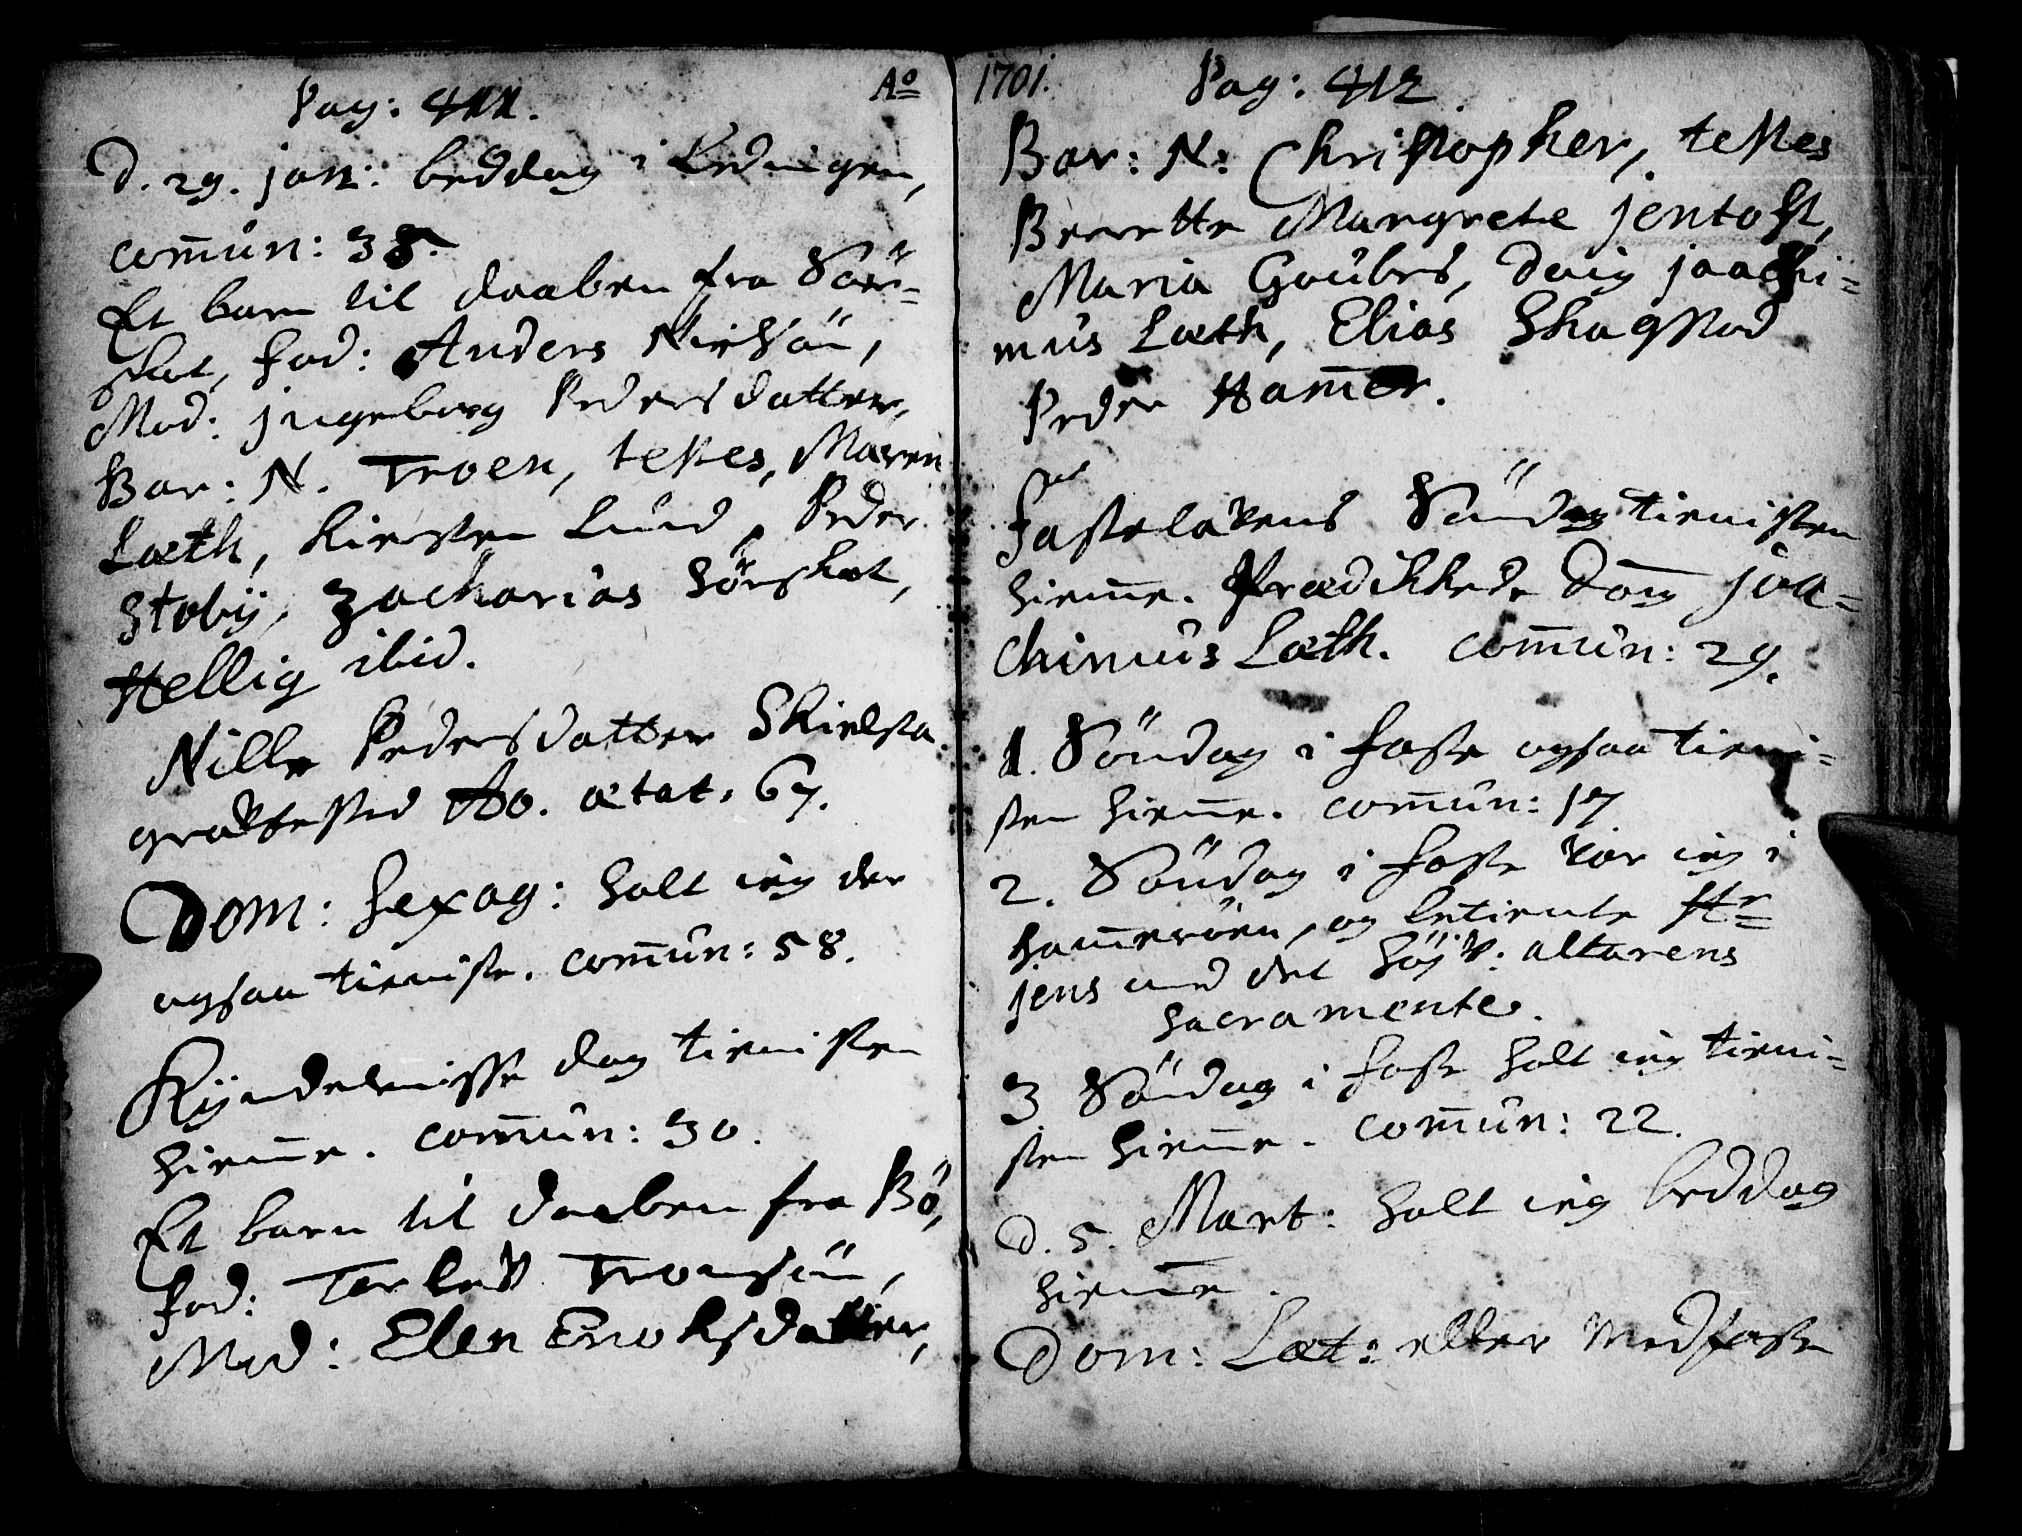 Pag: 411.
Aº
D. 29. jan: beddag i Ledingen,
com̄un: 38.
Et barn til daaben fra Sör=
skot, fad: Anders Nielsön,
Mod: jngeborg Pedersdatter,
Bar: N. Troen, testes, Maren
Læth, Kiersten Lund, Peder
Stobÿ, Zacharias Sörskot,
Hellig ibid.
Nille Pedersdatter Skielsta
graffested Ao. ætat. 67.
Dom: Sexag: holt ieg der
ogsaa tieniste. com̄un: 58.
Kÿndelmisse dag tienisten
hiem̄e. com̄un: 30.
Et barn til daaben fra Bö,
fad: Torlef Tronsön,
Mod: Elen Enoksdatter,
1701.
Pag: 412
Bar: N: Christopher, testes
Berette Margrete jentoft,
Maria Goubes, Dnig joachi=
mus Læth, Elias Skagstad
Peder Ham̄er.
Fastelavens Söndag tienisten
hiem̄e. Prædikkede Dom̄ joa=
chimus Læth. com̄un: 29.
1. Söndag i faste ogsaa tieni=
sten hiem̄e. com̄un: 17
2. Söndag i faste var ieg i
ham̄eröen, og betiente Hr=
jens med det höÿv: altarens
sacramente.
3 Söndag i faste holt ieg tieni=
sten hiem̄e. com̄un: 22.
D. 5. Mart: holt ieg beddag
hiem̄e.
Dom: Læt: eller Medfaste